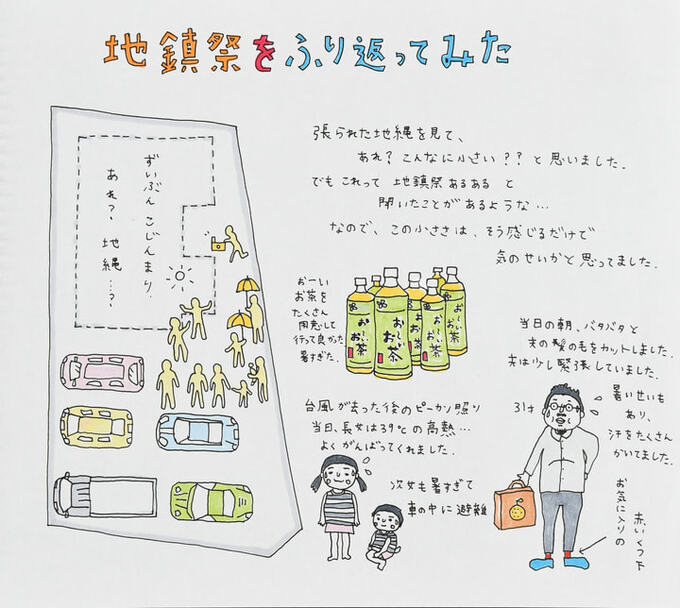 地鎮祭をふり返ってみた
張られた地縄を見て、
あれ？こんなに小さい？？と思いました。
でもこれって 地鎮祭あるあると
聞いたことがあるような…
なので、この小ささは、そう感じるだけで
気のせいかと思ってました。
ずいぶんこじんまり。
あれ？地縄…？
おーい
お茶を
たくさん
用意して
行って良かった
暑すぎた。
おーいお茶
おーいお茶
おーいお茶
当日の朝、バタバタと
夫の髪の毛をカットしました。
夫は少し緊張していました。
31才
暑いせいも
あり、
汗をたくさん
かいてました。
台風が去った後のピーカン照り
当日、長女は39℃の高熱…
よくがんばってくれました。
次女も暑すぎて
車の中に避難
お気に入りの
赤いくつ下